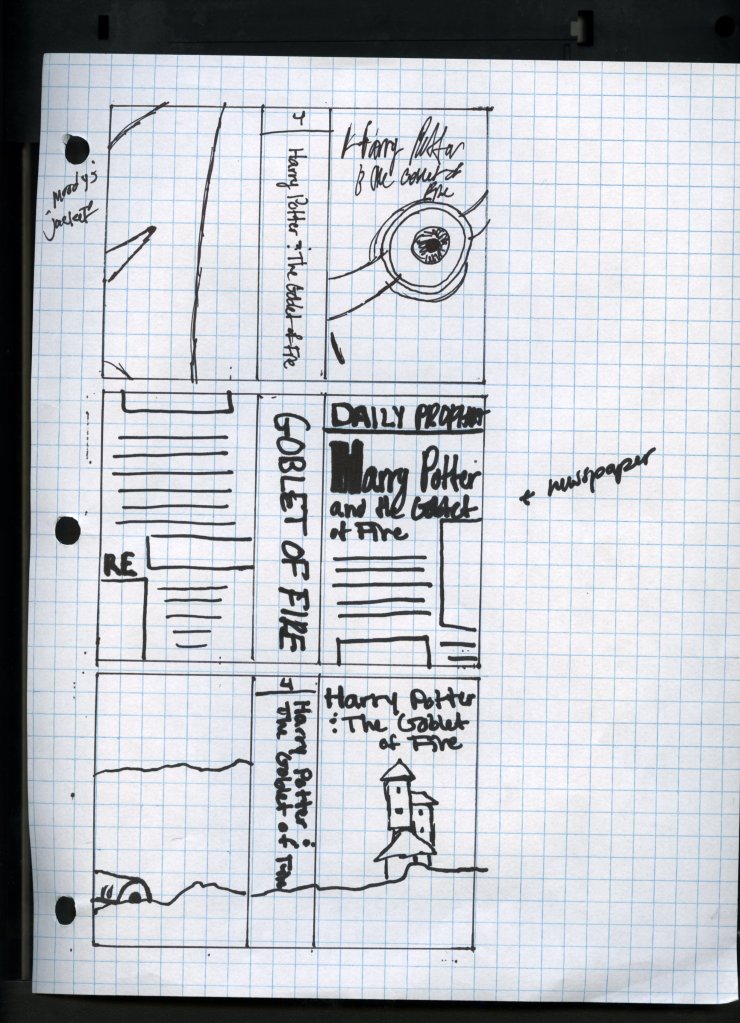 Moody's
jacket
4
Harry Potter : The Goblet of Fire
Harry Potter
& the Goblet of
Fire
GOBLET OF FIRE
DAILY PROPHET
Harry Potter
and the Goblet
of Fire
RE
newspaper
4
Harry Potter :
The Goblet of Fire
Harry Potter
: The Goblet
of Fire